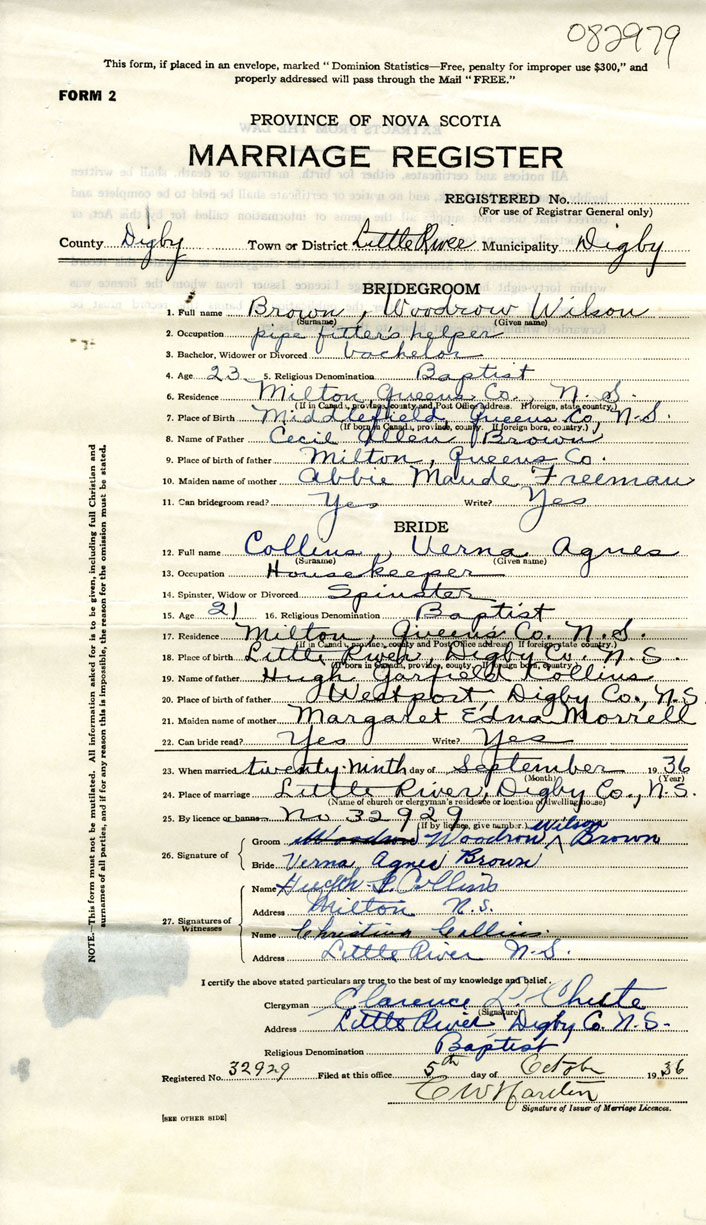 082979
This form, if placed in an envelope, marked "Dominion Statistics—Free, penalty for improper use $300," and
properly addressed will pass through the Mail "FREE."
FORM 2
PROVINCE OF NOVA SCOTIA
MARRIAGE REGISTER
REGISTERED No.
(For use of Registrar General only)
County Digby Town or District Little River Municipality Digby
BRIDEGROOM
1. Full name Brown, Woodrow Wilson
(Surname) (Given name)
2. Occupation pipe fitter's helper
3. Bachelor, Widower or Divorced bachelor
4. Age 23 5. Religious Denomination Baptist
6. Residence Milton, Queens Co., N.S.
(If in Canada, province, county and Post Office address. If foreign, state country.)
7. Place of Birth Middlefield, Queens Co, N.S.
(If born in Canada, province, county. If foreign born, country.)
8. Name of Father Cecil Allen Brown
9. Place of birth of father Milton, Queens Co.
10. Maiden name of mother Abbie Maude Freeman
11. Can bridegroom read? Yes Write? Yes
BRIDE
12. Full name Collins, Verna Agnes
(Surname) (Given name)
13. Occupation Housekeeper
14. Spinster, Widow or Divorced Spinster
15. Age 21 16. Religious Denomination Baptist
17. Residence Milton, Queens Co. N.S.
(If in Canada, province, county and Post Office address. If foreign state country.)
18. Place of birth Little River, Digby Co. N.S.
(If born in Canada, province, county. If foreign born, country.)
19. Name of father Hugh Garfield Collins
20. Place of birth of father Westport, Digby Co., N.S.
21. Maiden name of mother Margaret Edna Morrell
22. Can bride read? Yes Write? Yes
23. When married twenty-ninth day of September 1936
(Month) (Year)
24. Place of marriage Little River, Digby Co., N.S.
(Name of church or clergyman's residence or location of dwelling house)
25. By licence or banns No 32929
(If by licence, give number) Wilson
26. Signature of Groom Woodrow Brown
Bride Verna Agnes Brown
27. Signatures of Witnesses
Name Hugh Collins
Address Milton N.S.
Name Christina Collins
Address Little River N.S.
I certify the above stated particulars are true to the best of my knowledge and belief.
Clergyman Clarence
(Signature)
Address Little River, Digby Co. N.S.
Religious Denomination Baptist
Registered No. 32929 Filed at this office 5th day of October 1936
Signature of Issuer of Marriage Licences.
[SEE OTHER SIDE]
NOTE.—This form must not be mutilated. All information asked for is to be given, including full Christian and
surnames of all parties, and if for any reason this is impossible, the reason for the omission must be stated.